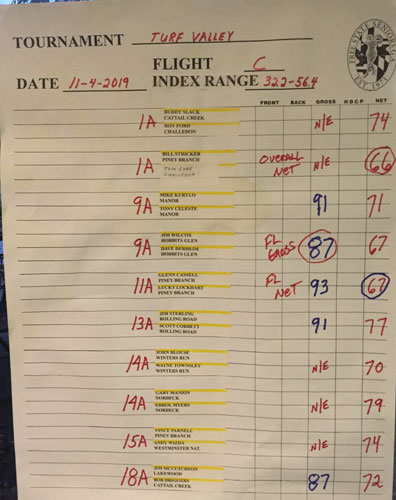 TOURNAMENT TURF VALLEY
FLIGHT C
DATE 11-4-2019 INDEX RANGE 32.2-56.4
FRONT BACK GROSS HDCP NET
1A BUDDY SLACK
CATTAIL CREEK
ROY FORD
CHALLEDON
N/E 74
1A BILL STRICKER
PINEY BRANCH
OVERALL NET N/E 66
9A MIKE KURTLO
MANOR
TONY CELESTE
MANOR
91 71
9A JIM WILCOX
HOBBITS GLEN
DAVE DERHEIM
HOBBITS GLEN
FL GROSS 87 67
11A GLENN CASSELL
PINEY BRANCH
LUCKY LOCKHART
PINEY BRANCH
FL NET 93 67
13A JIM STERLING
ROLLING ROAD
SCOTT CORBETT
ROLLING ROAD
91 77
14A JOHN BLOUSE
WINTERS RUN
WAYNE TOWNSLEY
WINTERS RUN
N/E 70
14A GARY MANION
NORBECK
ERROL MYERS
NORBECK
N/E 79
15A VINCE PARNELL
PINEY BRANCH
ANDY WIZDA
WESTMINSTER NAT.
N/E 74
18A JIM MCCUTCHEON
LAKEWOOD
BOB DRIGGERS
CATTAIL CREEK
87 72